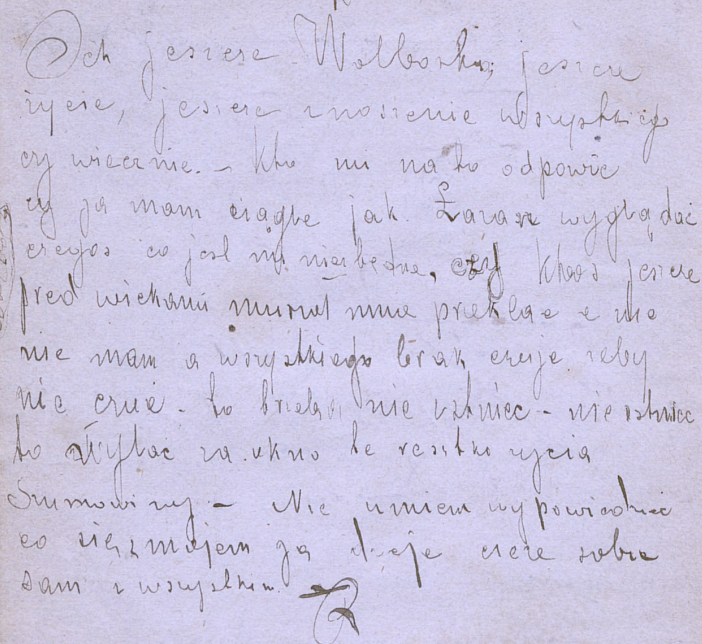 Och jescze Walborka, jescze
życie, jescze znoszenie wszystkiego
czy wiecznie. – kto mi na to odpowie
czy ja mam ciągle jak Łazarz wyglądać
czegoś co jest mi niezbędne, czy ktoś jescze
przed wiekami musiał mnie przeklac e nic
nie mam a wszystkiego brak czuje. zeby
nie czuć – to trzeba nie istnieć – nie istnieć
to wylać za okno te resztki życia
Szumowiny – Nie umiem wypowiedzieć
co się z mojem ja dzieje czcze sobie
sam z wszystkiem.